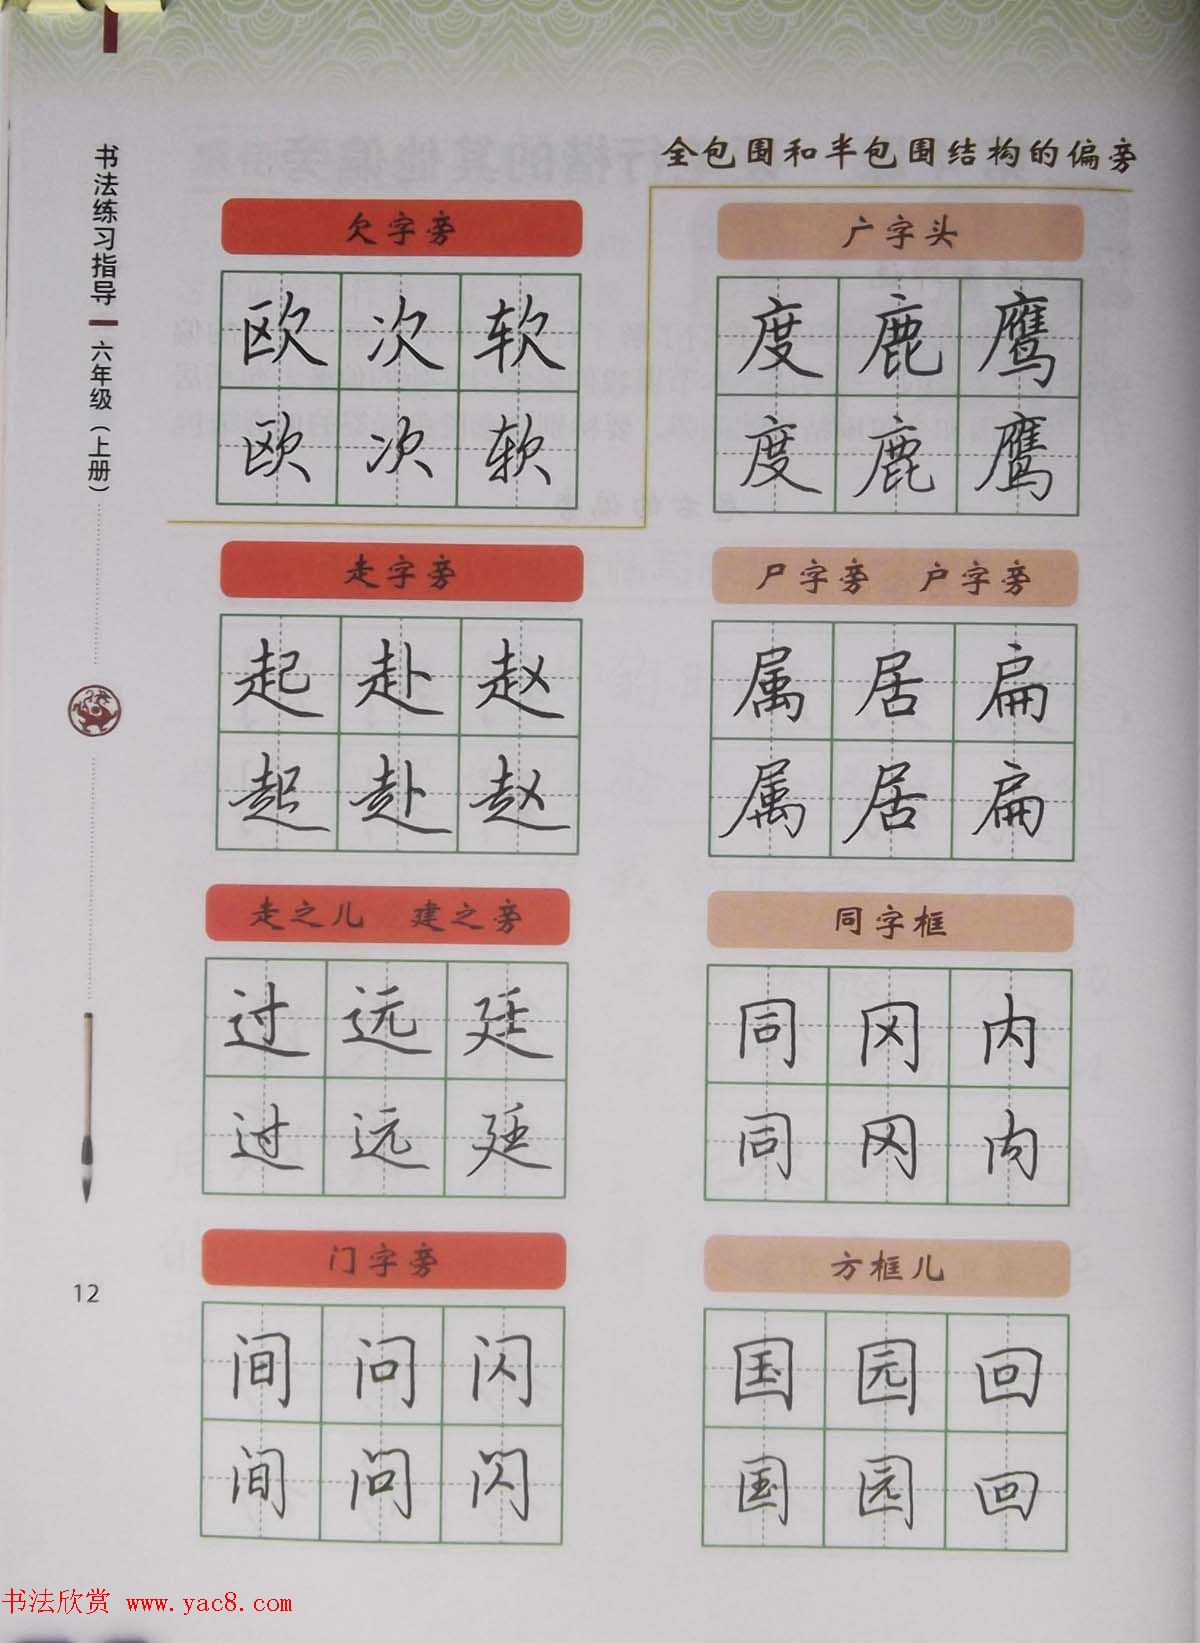 全包围和半包围结构的偏旁
书法练习指导
六年级（上册）
欠字旁
欧次软
欧次软
广字头
度鹿鹰
度鹿鹰
走字旁
起赴赵
起赴赵
尸字旁 户字旁
属居扁
属居扁
走之儿 建之旁
过远廷
过远廷
同字框
同冈内
同冈内
门字旁
间问闪
间问闪
方框儿
国园回
国园回
12
书法欣赏 www.yac8.com